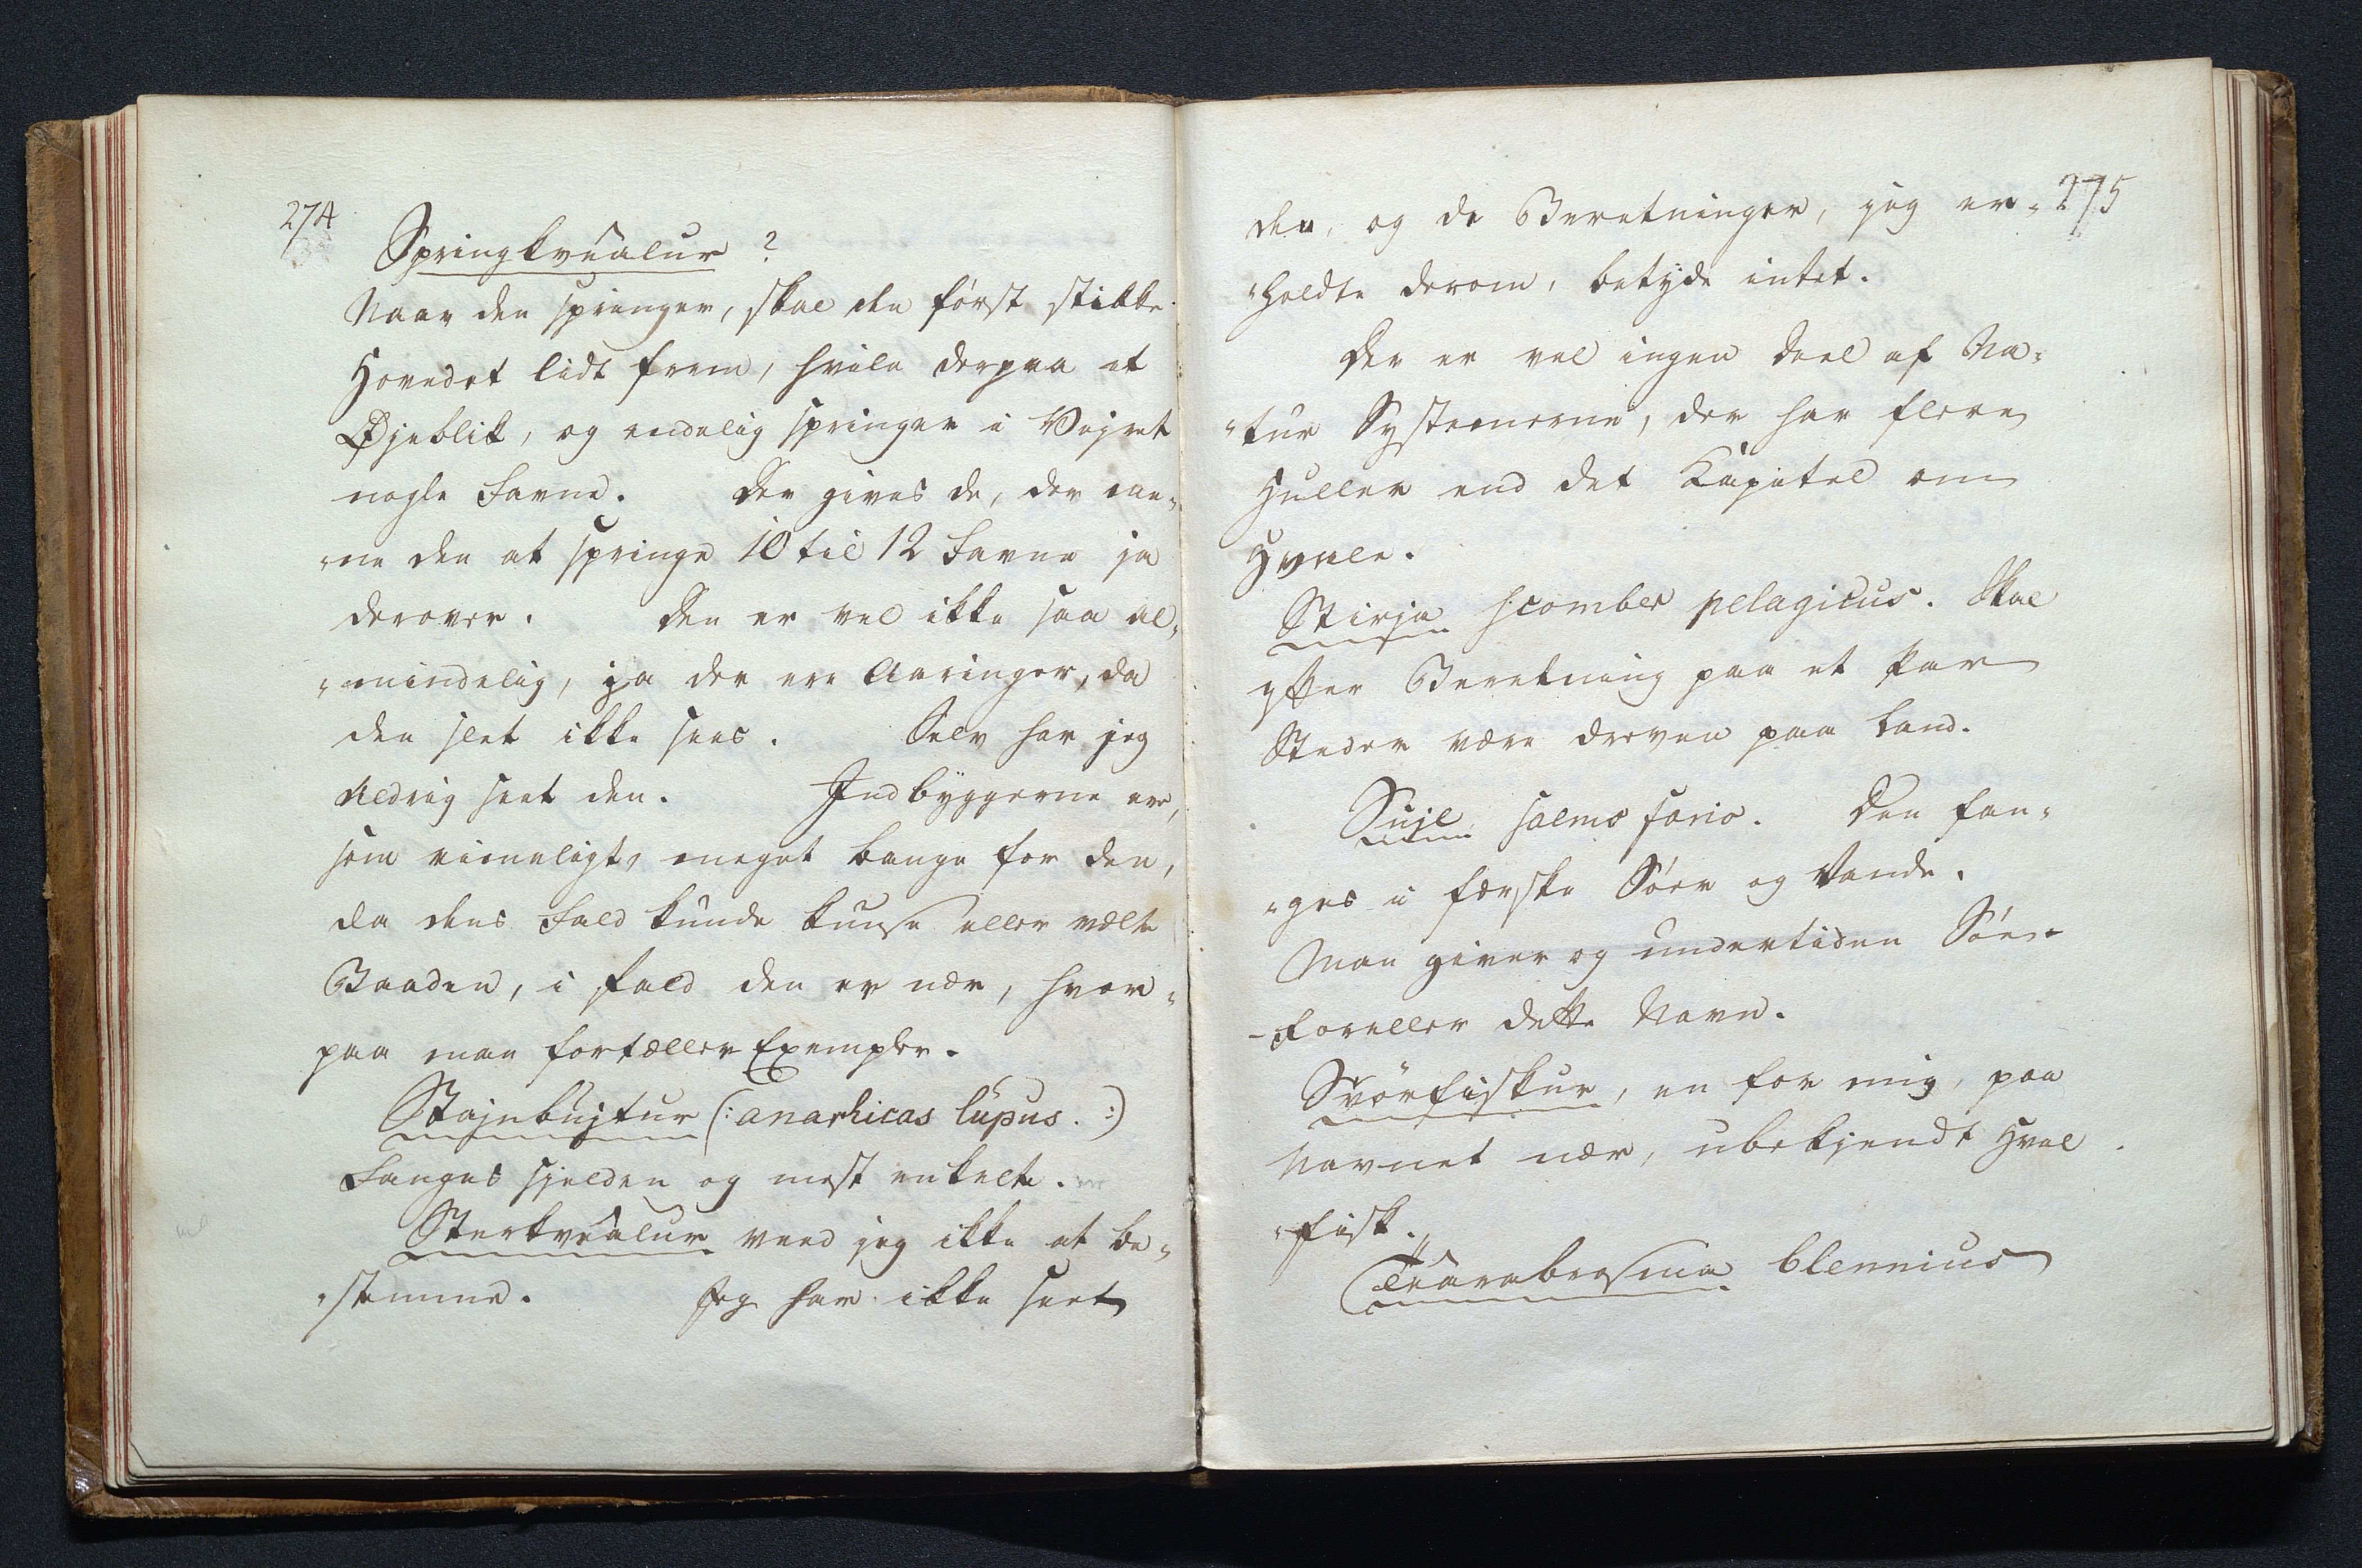 274
Springkvúalur ?
Naar den springer, skal den först stikke
Hovedet lidt frem, hvile derpaa et
Øjeblik, og endelig springer i Vejret
nogle Favne. Der gives de, der mee-
"ne den at springe 10 til 12 Favne ja
derover. Den er vel ikke saa al-
"mindelig, ja der ere Aaringer, da
den slet ikke sees. Selv har jeg
aldrig seet den. Indbÿggerne ere,
som rimeligt, meget bange for den,
da dens Fald kunde knuse eller vælte
Baaden, i fald den er nær, hvor-
paa man fortæller Exempler.
Stajnbujtur (: anarhicas lupus. :)
Fanges sjelden og mest enkelte.
Sterkvúalur veed jeg ikke at be-
"stemme. Jeg har ikke seet
275
den, og de Beretninger, jeg er-
"holdte derom, betÿde intet.
Der er vel ingen Deel af Na-
"tur Systemerne, der har flere
Huller end det Kapitel om
Hvale.
Stirja scomber pelagicus. Skal
efter Beretning paa et par
Steder være dreven paa Land.
Sujl salmo fario. Den fan-
"ges i ferske Söer og Vande.
Man giver og undertiden Söe-
-Foreller dette Navn.
Svörfiskur, en for mig, paa
Navnet nær, ubekjendt Hval
"fisk.
Túarabrosma blennius